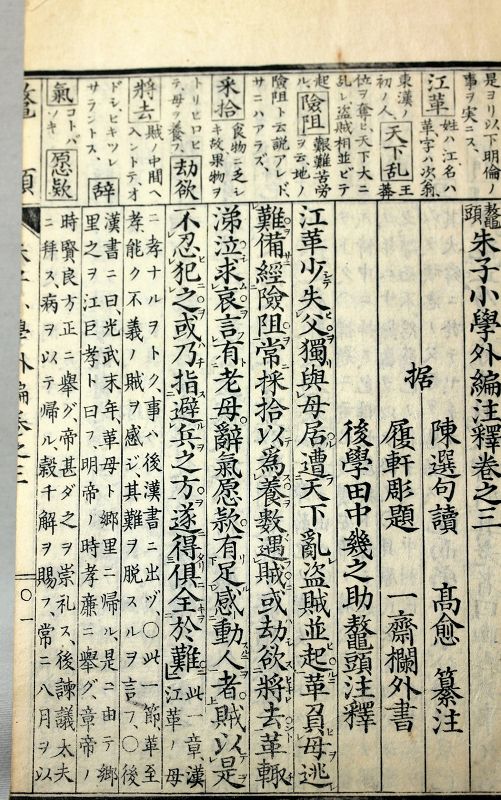 鼇頭朱子小學外編注釋卷之三
陳選句讀　高愈　纂注
据
履軒彫題　一齋欄外書
後學田中幾之助鼇頭注釋
江革少失父獨與母居遭天下亂盜賊並起革負母逃
難備經險阻常採拾以為養數遇賊或劫欲將去革輙
涕泣求哀言有老母辭氣愿款有足感動人者賊以是
不忍犯之或乃指避兵之方遂得俱全於難此一章漢江革ノ母
ニ孝ナルヲトク、事ハ後漢書ニ出ヅ、〇此一節革至
孝能ク不義ノ賊ヲ感ジ、其難ヲ脱スルヲ言フ、〇後
漢書ニ曰、光武末年、革母ト郷里ニ帰ル、是ニ由テ郷
里之ヲ江巨孝ト曰フ、明帝ノ時孝廉ニ擧グ、章帝ノ
時賢良方正ニ擧グ、帝甚ダ之ヲ崇礼ス、後諫議太夫
ニ拜ス、病ヲ以テ帰ル、穀千斛ヲ賜フ、常ニ八月ヲ以
是ヨリ以下明倫ノ
事ヲ実ニス、
江革　姓ハ江名ハ
革字ハ次翁
東漢ノ
初ノ人　天下乱　王莽
位ヲ奪ヒ天下大ニ
乱レ盜賊相並ビテ
起ル　險阻　艱難苦勞
ヲ云地ノ
險阻ト云説アレド、
サニハアラズ、
采拾　食物ニ乏シ
キ故果物ヲ
トリヒロヒ
テ、母ヲ養フ、　劫欲
將去　賊ノ中間ヘ
入ントテ、オ
ドシ、ヒキツレ
サラントス、　辭
氣　コトバ
ツキ、　愿款
鼇頭
朱子小學外編卷之三
〇一